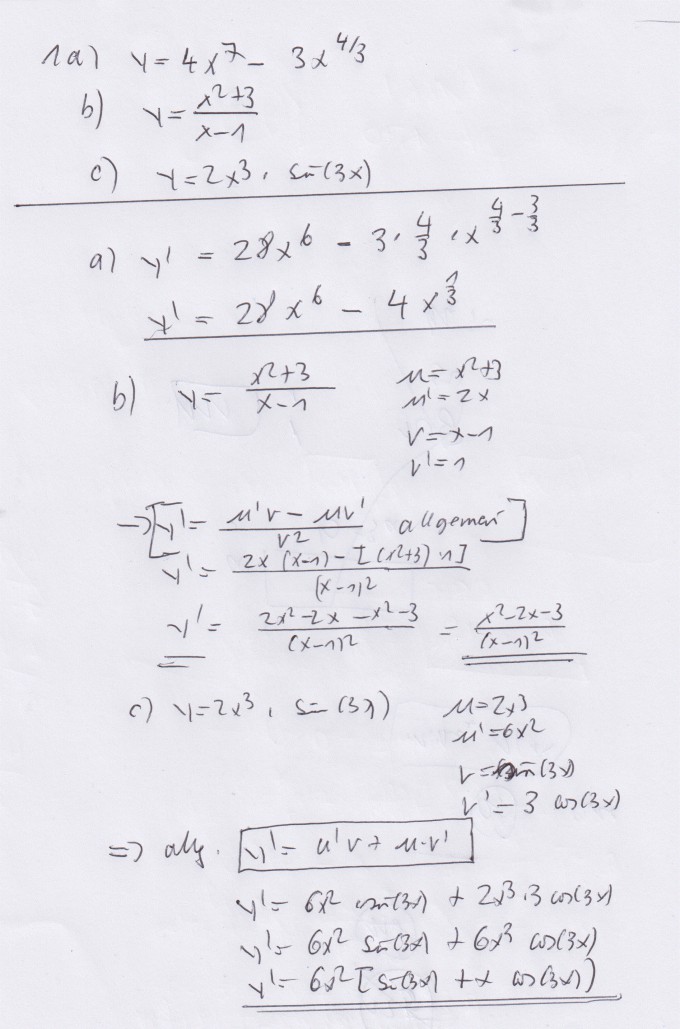 1a) y = 4x^7 - 3x^{4/3}
b) y = \frac{x^2+3}{x-1}
c) y = 2x^3 · sin(3x)
a) y' = 28x^6 - 3 · \frac{4}{3} · x^{\frac{4}{3} - \frac{3}{3}}
y' = 28x^6 - 4x^{\frac{1}{3}}
b) y = \frac{x^2+3}{x-1} u = x^2+3
u' = 2x
v = x-1
v' = 1
→ [y' = \frac{u'v - uv'}{v^2} allgemein]
y' = \frac{2x(x-1) - [(x^2+3) · 1]}{(x-1)^2}
y' = \frac{2x^2 - 2x - x^2 - 3}{(x-1)^2} = \frac{x^2 - 2x - 3}{(x-1)^2}
c) y = 2x^3 · sin(3x) u = 2x^3
u' = 6x^2
v = sin(3x)
v' = 3 cos(3x)
=> allg. y' = u'v + u·v'
y' = 6x^2 sin(3x) + 2x^3 · 3 cos(3x)
y' = 6x^2 sin(3x) + 6x^3 cos(3x)
y' = 6x^2 [sin(3x) + x cos(3x))